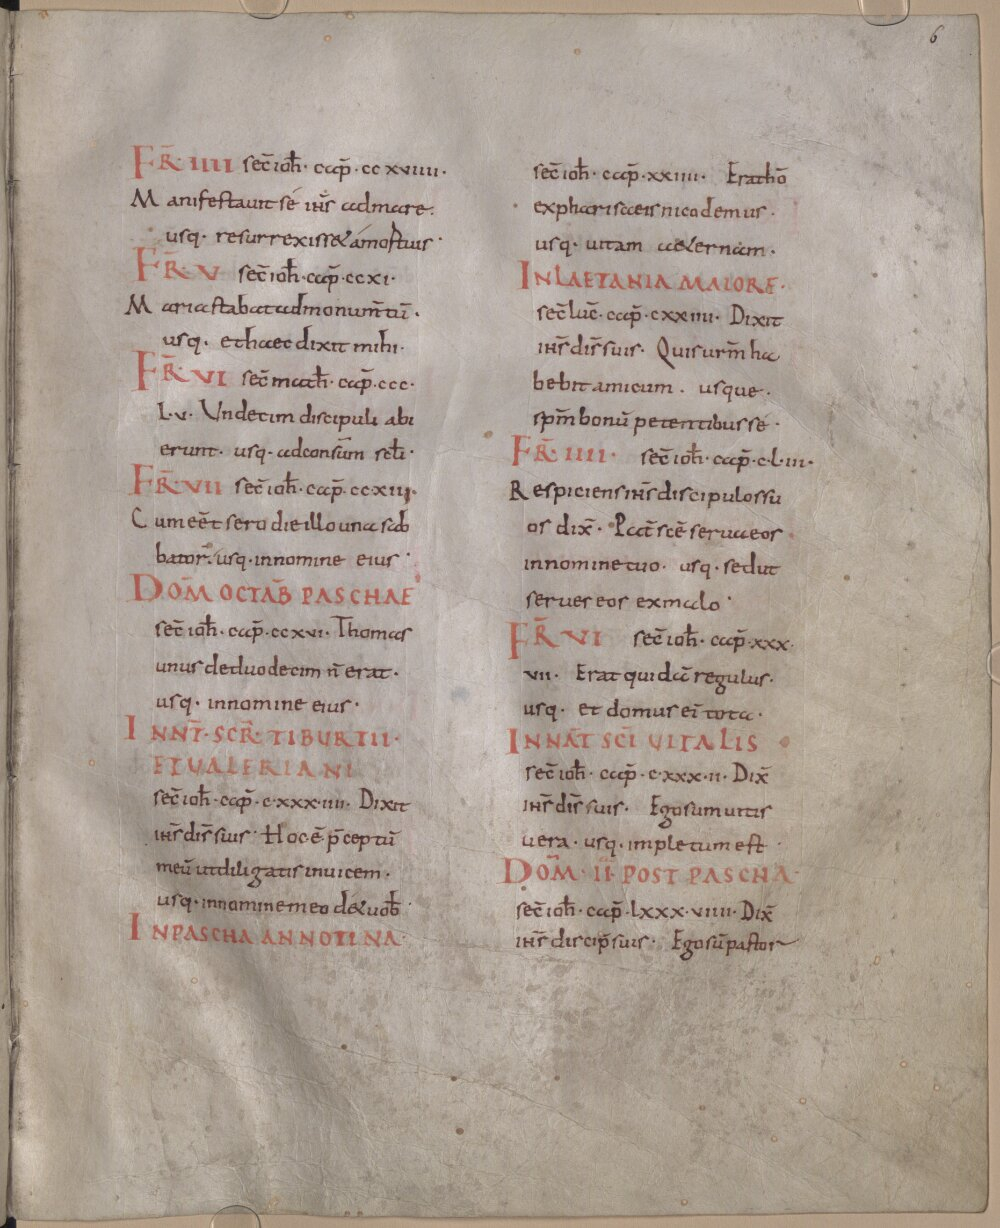 6
FR̄·IIII sec̄ ioh̄· cap̄· ccxviiii·
Manifestavit se ih̄s ad mare·
usq· resurrexisset a mortuis·
FR̄·V sec̄ ioh̄· cap̄· ccxi·
Maria stabat ad monum̄tū·
usq· et haec dixit mihi·
FR̄·VI sec̄ math̄· cap̄· ccc·
L·v· Undecim discipuli abi
erunt· usq· ad consūm sc̄li·
FR̄·VII sec̄ ioh̄· cap̄· ccxiii·
Cum eēt sero die illo una sab
bator̄· usq· in nomine eius·
DOM̄ OCTAB̄ PASCHAE
sec̄ ioh̄· cap̄· ccxvi· Thomas
unus de duodecim n̄ erat·
usq· in nomine eius·
IN NAT̄· SCR̄· TIBURTII·
ET VALERIANI
sec̄ ioh̄· cap̄· c·xxx·iiii· Dixit
ih̄s dis̄ suis· Hoc ē p̄ceptū
meū ut diligatis invicem·
usq· in nomine meo det vob̄·
IN PASCHA ANNOTINA·
sec̄ ioh̄· cap̄· xxiiii· Erat hō
ex pharisaeis nicodemus·
usq· vitam aeternam·
IN LAETANIA MAIORE·
sec̄ luc̄· cap̄· cxxiiii· Dixit
ih̄s dis̄ suis· Quis ur̄m ha
bebit amicum· usque·
sp̄m bonū petentibus se·
FR̄·IIII· sec̄ ioh̄· cap̄· c·l·iii·
Respiciens ih̄s discipulos su
os dix̄· Pat̄ sc̄e serva eos
in nomine tuo· usq· sed ut
serves eos ex malo·
FR̄ VI sec̄ ioh̄· cap̄· xxx
vii· Erat quidā regulus·
usq· et domus ei tota·
IN NAT̄ SCI VITALIS
sec̄ ioh̄· cap̄· c·xxx·ii· Dix̄
ih̄s dis̄ suis· Ego sum vitis
vera· usq· impletum est·
DOM̄· II· POST PASCHA·
sec̄ ioh̄· cap̄· lxxx·viiii· Dix̄
ih̄s discip̄ suis· Ego sū pastor